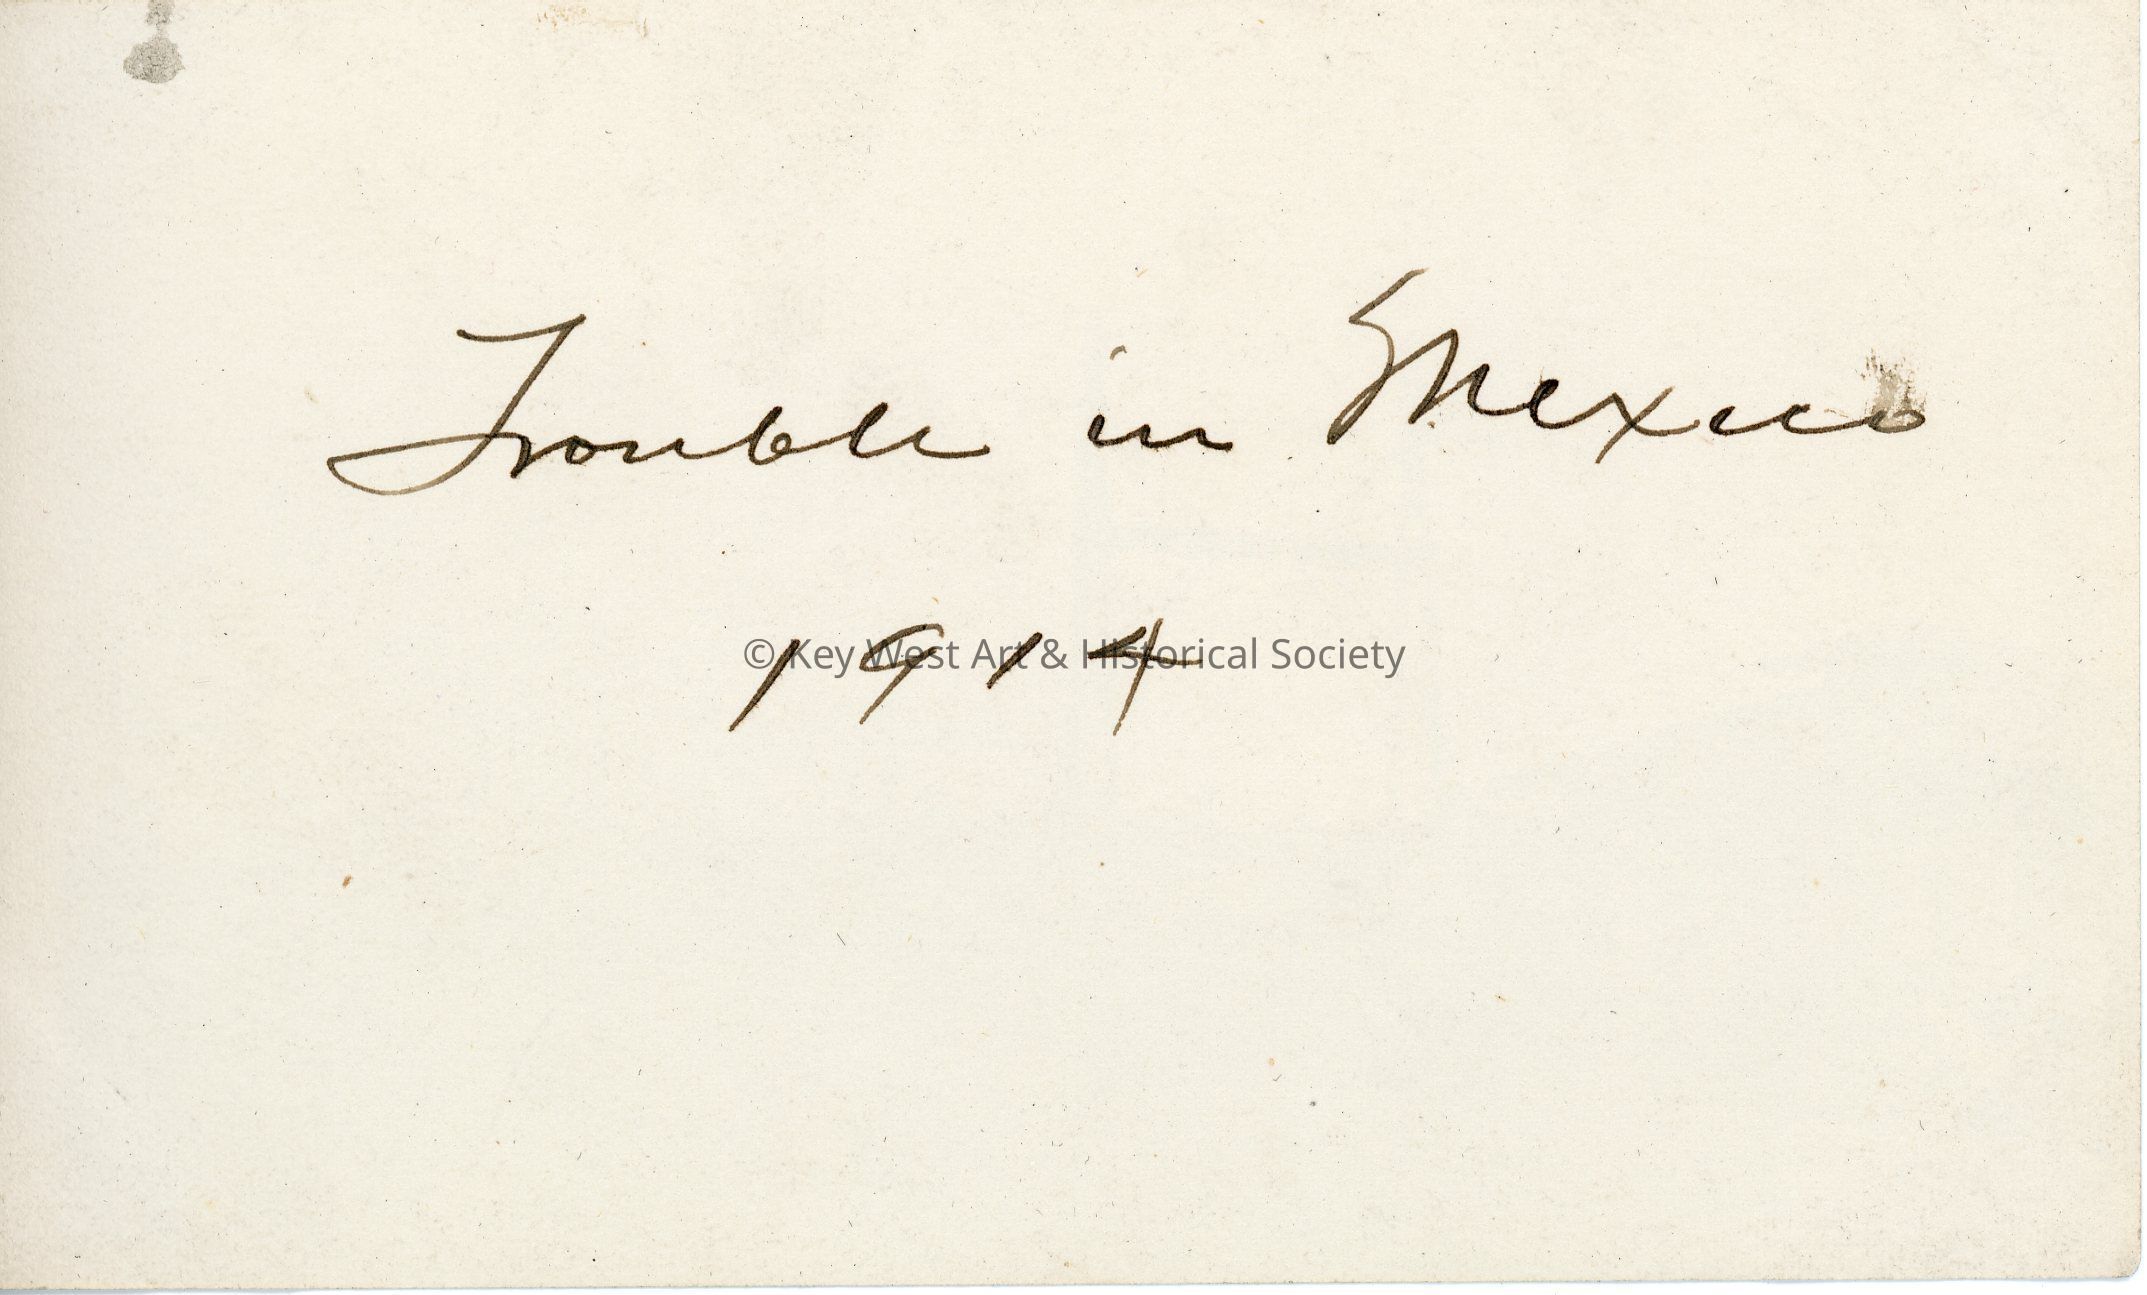 Trouble in Mexico
1914
© Key West Art & Historical Society